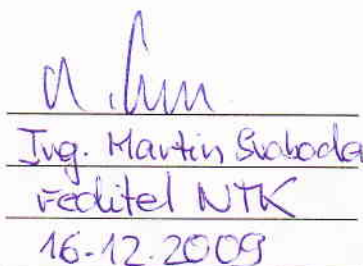 Ing. Martin Svoboda
ředitel NTK
16.12.2009